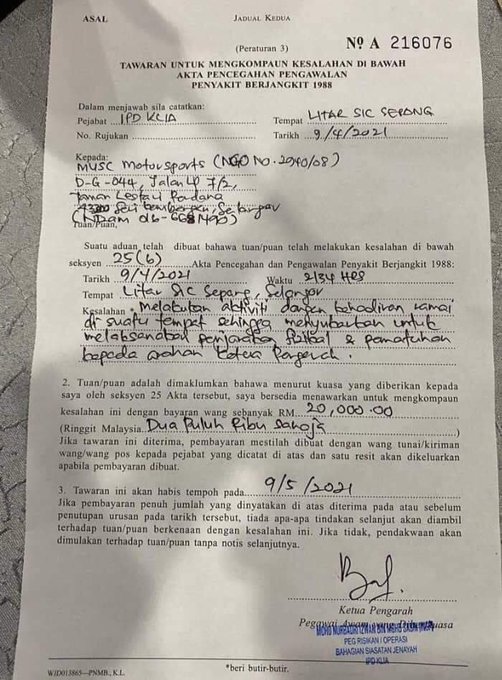 ASAL
JADUAL KEDUA
(Peraturan 3)
No A 216076
TAWARAN UNTUK MENGKOMPAUN KESALAHAN DI BAWAH
AKTA PENCEGAHAN PENGAWALAN
PENYAKIT BERJANGKIT 1988
Dalam menjawab sila catatkan:
Pejabat IPD KLIA Tempat LITAR SIC SEPANG
No. Rujukan Tarikh 9/4/2021
Kepada:
MUSC Motorsports (NGO NO. 2940/08)
D-G-044, Jalan LP 7/2,
Taman Lestari Perdana
Seri Kembangan, Selangor
Tuan/Puan,
Suatu aduan telah dibuat bahawa tuan/puan telah melakukan kesalahan di bawah
seksyen 25(b) Akta Pencegahan dan Pengawalan Penyakit Berjangkit 1988:
Tarikh 9/4/2021 Waktu 2134 HRS
Tempat Litar SIC Sepang, Selangor
Kesalahan * Melakukan aktiviti dengan kehadiran ramai
di suatu tempat sehingga menyukarkan untuk
melaksanakan penjarakan fizikal & pematuhan
kepada arahan Ketua Pengarah.
2. Tuan/puan adalah dimaklumkan bahawa menurut kuasa yang diberikan kepada
saya oleh seksyen 25 Akta tersebut, saya bersedia menawarkan untuk mengkompaun
kesalahan ini dengan bayaran wang sebanyak RM 20,000.00
(Ringgit Malaysia Dua Puluh Ribu Sahaja)
Jika tawaran ini diterima, pembayaran mestilah dibuat dengan wang tunai/kiriman
wang/wang pos kepada pejabat yang dicatat di atas dan satu resit akan dikeluarkan
apabila pembayaran dibuat.
3. Tawaran ini akan habis tempoh pada 9/5/2021
Jika pembayaran penuh jumlah yang dinyatakan di atas diterima pada atau sebelum
penutupan urusan pada tarikh tersebut, tiada apa-apa tindakan selanjut akan diambil
terhadap tuan/puan berkenaan dengan kesalahan ini. Jika tidak, pendakwaan akan
dimulakan terhadap tuan/puan tanpa notis selanjutnya.
Ketua Pengarah
Pegawai Awam yang
PEG RISIKAN / OPERASI
BAHAGIAN SIASATAN JENAYAH
IPD KLIA
*beri butir-butir.
WJD013865—PNMB., K.L.